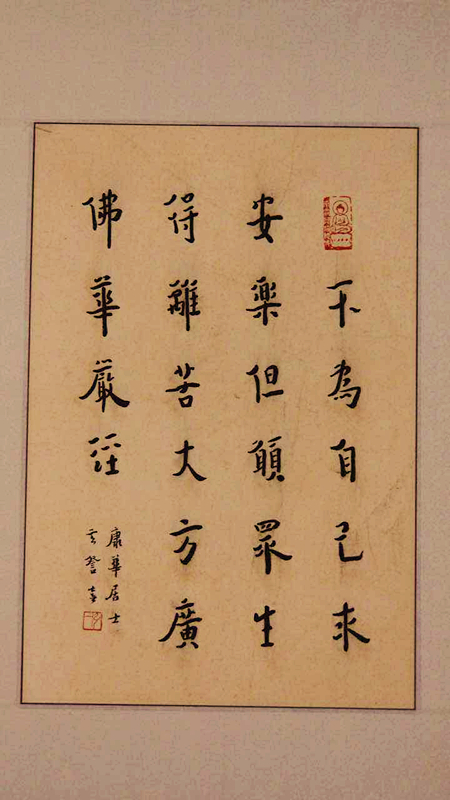 不為自己求
安樂但願眾生
得離苦大方廣
佛華嚴經
康華居士